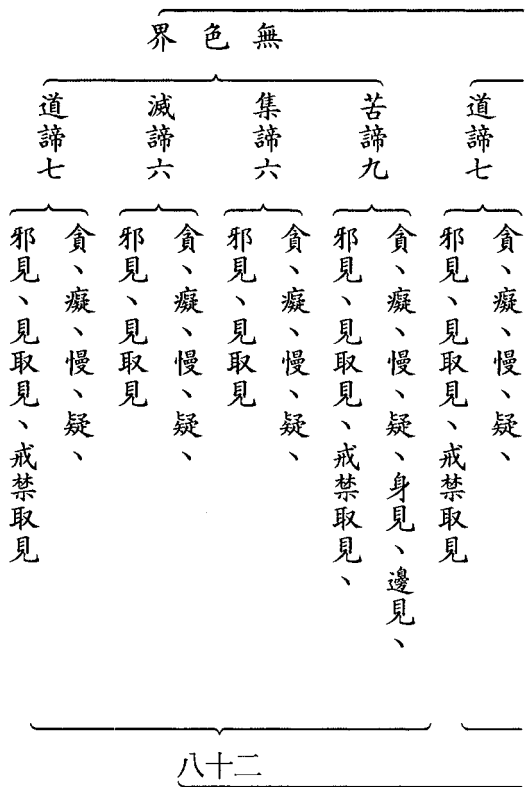 道諦七
貪、癡、慢、疑、
邪見、見取見、戒禁取見
無色界
苦諦九
貪、癡、慢、疑、身見、邊見、
邪見、見取見、戒禁取見、
集諦六
貪、癡、慢、疑、
邪見、見取見
滅諦六
貪、癡、慢、疑、
邪見、見取見
道諦七
貪、癡、慢、疑、
邪見、見取見、戒禁取見
二十八